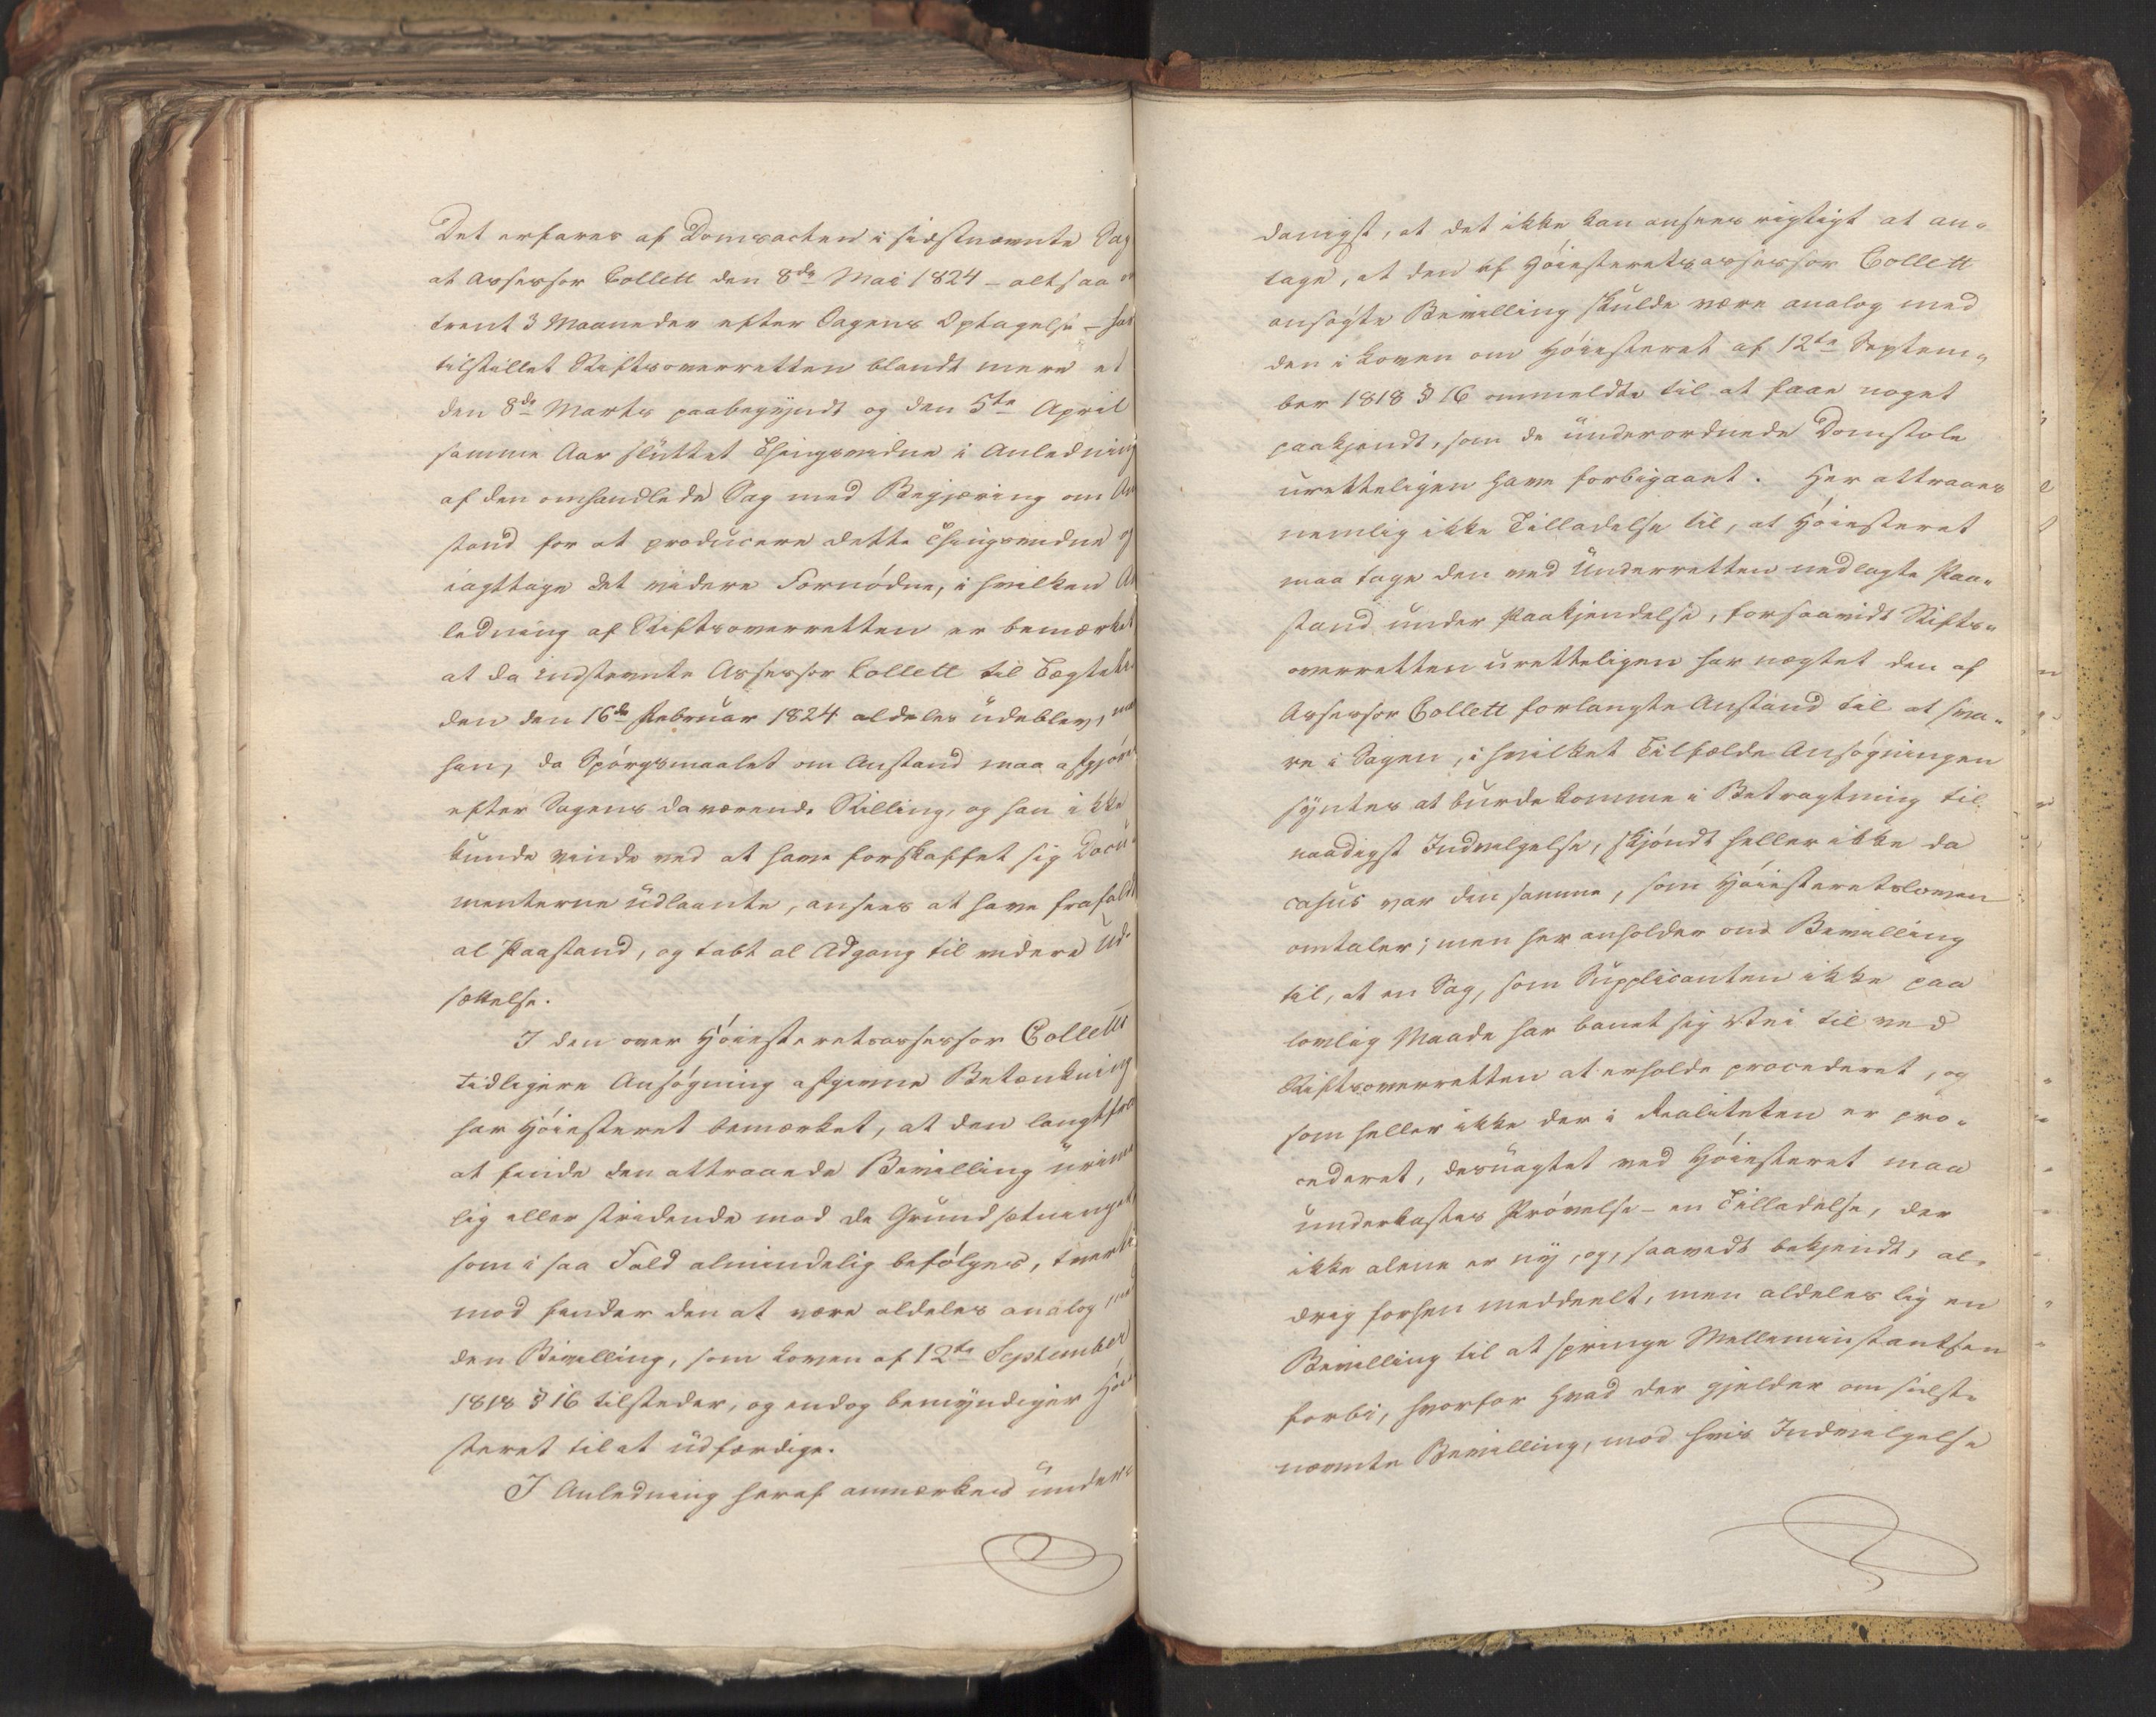 Det erfares af Domsacten i sidstnævnte Sag
at Assessor Collett den 8de Mai 1824 – altsaa om
trent 3 Maaneder efter Sagens Optagelse – har
tilstillet Stiftsoverretten blandt mere et
den 8de Marts paabegyndt og den 5te April
samme Aar sluttet Thingsvidne i Anledning
af den omhandlede Sag med Begjæring om An
stand for at producere dette Thingsvidne og
iagttage det videre Fornødne, i hvilken An
ledning af Stiftsoverretten er bemærket
at da Indstevnte Assessor Collett til Tægteti
den den 16de Februar 1824 aldeles udeblev, maa
han, da Spørgsmaalet om Anstand maa afgjøres
efter Sagens daværende Stilling, og han ikke
kunde vinde ved at have forskaffet sig Docu-
menterne udlaante, ansees at have frafaldt
al Paastand, og tabt al Adgang til videre Ud-
sættelse.
I den over Høiesteretsassessor Colletts
tidligere Ansøgning afgivne Betænkning
har Høiesteret bemærket, at den langtfra
at finde den attraaede Bevilling urime
lig eller stridende mod de Grundsætninger
som i saa Fald almindelig befølges, tverti
mod finder den at være aldeles analog med
den Bevilling, som Loven af 12te September
1818 § 16 tilsteder, og endog bemyndiger Høie
steret til at udfærdige.
I Anledning heraf anmærkes under-
danigst, at det ikke kan ansees rigtigt at an-
tage, at den af Høiesteretsassessor Collett
ansøgte Bevilling skulde være analog med
den i Loven om Høiesteret af 12te Septem-
ber 1818 § 16 ommeldte til at faae noget
paakjendt, som de underordnede Domstole
uretteligen have forbigaaet. Her attraaes
nemlig ikke Tilladelse til, at Høiesteret
maa tage den ved Underretten nedlagte Paa-
stand under Paakjendelse, forsaavidt Stifts-
overretten uretteligen har nægtet den af
Assessor Collett forlangte Anstand til at sva-
re i Sagen, i hvilket Tilfælde Ansøgningen
syntes at burde komme i Betragtning til
naadigst Indvilgelse, skjøndt heller ikke da
casus var den samme, som Høiesteretsloven
omtaler; men her anholdes om Bevilling
til, at en Sag, som Supplicanten ikke paa
lovlig Maade har banet sig Vei til ved
Stiftsoverretten at erholde procederet, og
som heller ikke der i Realiteten er pro-
cederet, desuagtet ved Høiesteret maa
underkastes Prøvelse – en Tilladelse, der
ikke alene er ny, og, saavidt bekjendt, al-
drig forhen meddeelt, men aldeles lig en
Bevilling til at springe Melleminstantsen
forbi, hvorfor hvad der gjelder om sidst-
nævnte Bevilling, mod hvis Indvilgelse